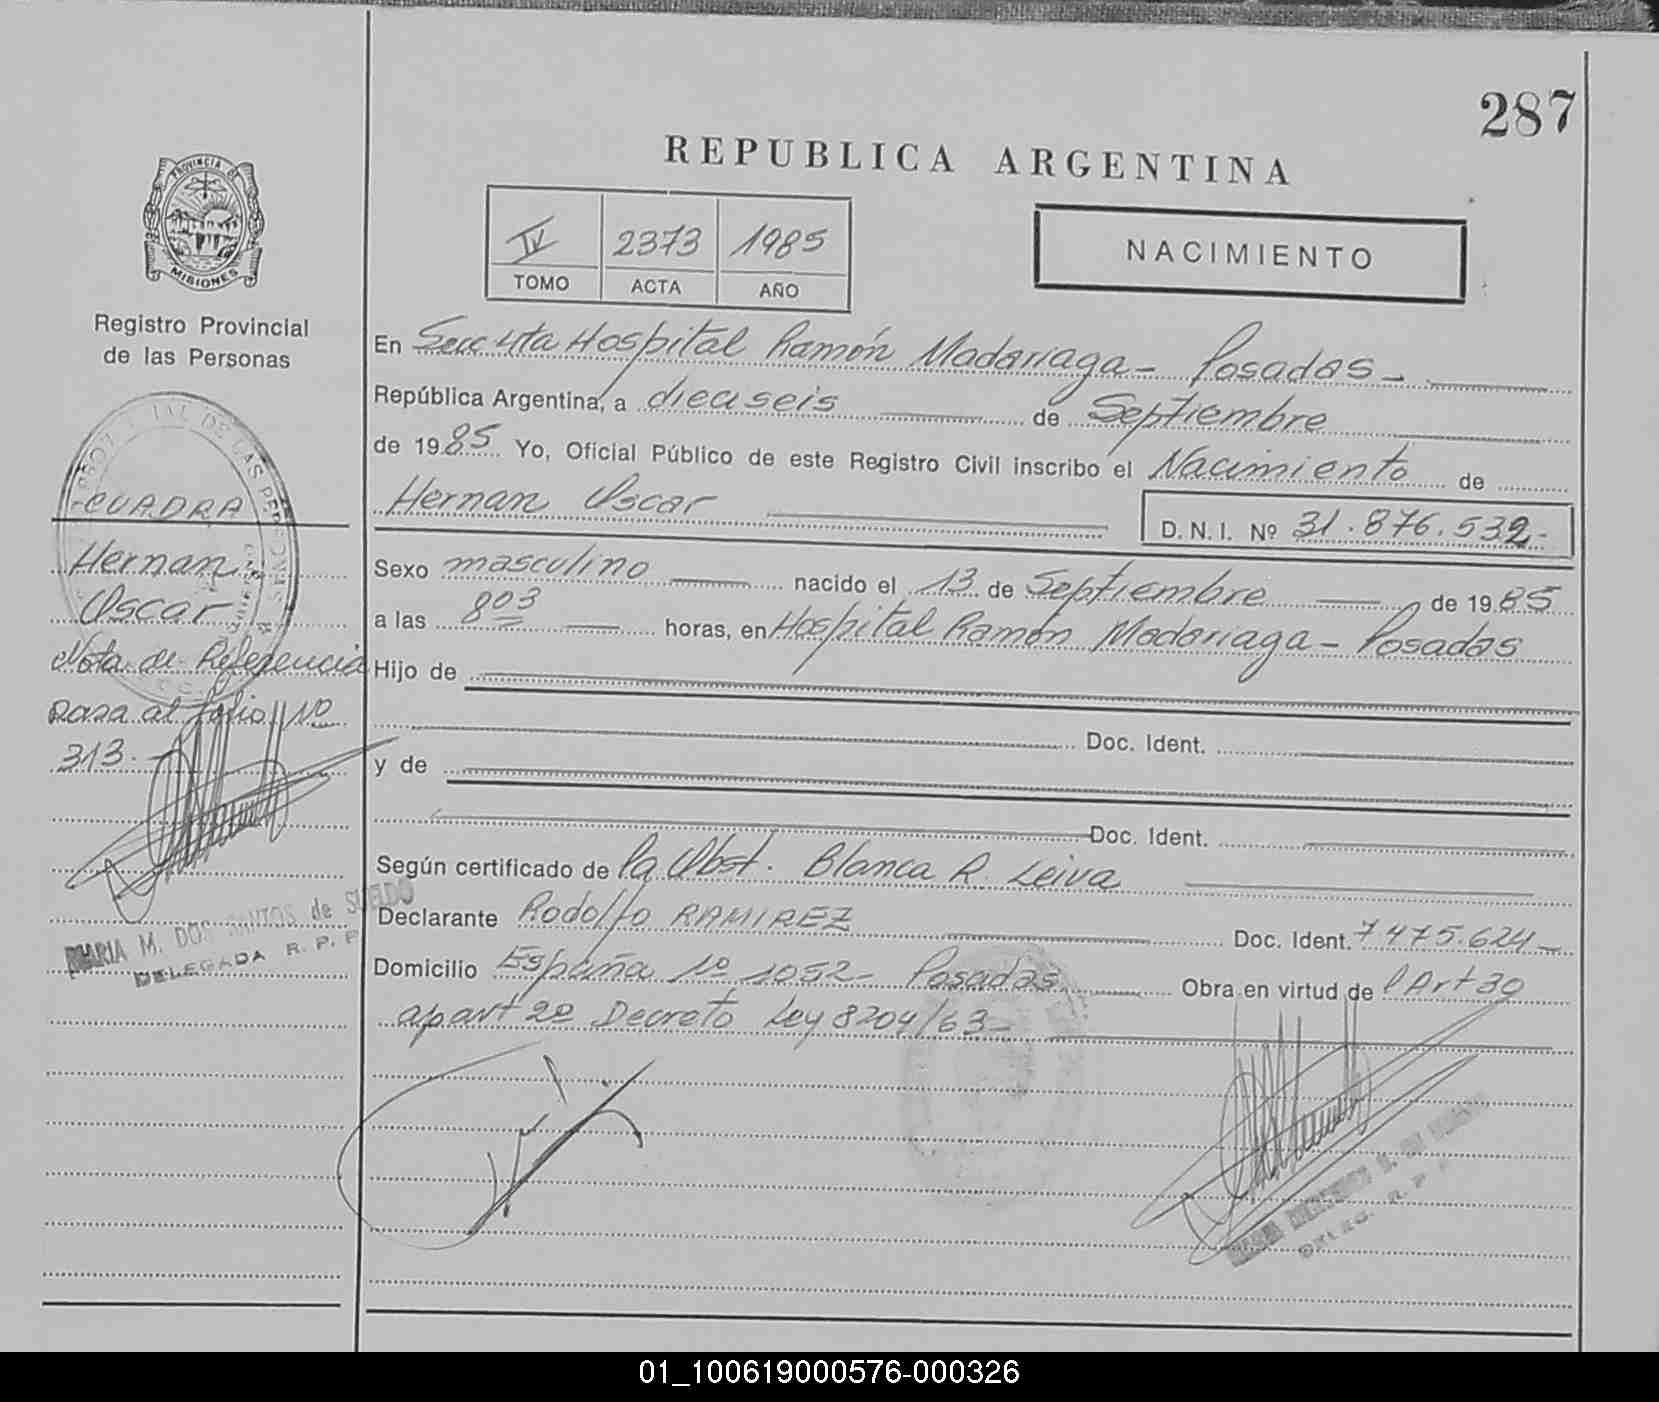 287
REPUBLICA ARGENTINA
PROVINCIA DE
MISIONES
Registro Provincial
de las Personas
IV 2373 1985
TOMO ACTA AÑO
NACIMIENTO
En Secc 4ta Hospital Ramón Madariaga - Posadas -
República Argentina, a dieciseis de Septiembre
de 1985 Yo, Oficial Público de este Registro Civil inscribo el Nacimiento de
Hernan Oscar
D. N. I. Nº 31.876.532-
Sexo masculino nacido el 13 de Septiembre de 1985
a las 803 horas, en Hospital Ramón Madariaga - Posadas
Hijo de
Doc. Ident.
y de
Doc. Ident.
Según certificado de la Obst. Blanca R. Leiva
Declarante Rodolfo RAMIREZ Doc. Ident. 7475.624-
Domicilio España Nº 1052- Posadas Obra en virtud de l Art 30
apart 2º Decreto Ley 8204/63-
CUADRA
Hernan
Oscar
Nota de Referencia
pasa al folio Nº
313.-
MARIA M. DOS SANTOS de SUELDO
DELEGADA R. P. P.
DELEG. R. P.
01_100619000576-000326